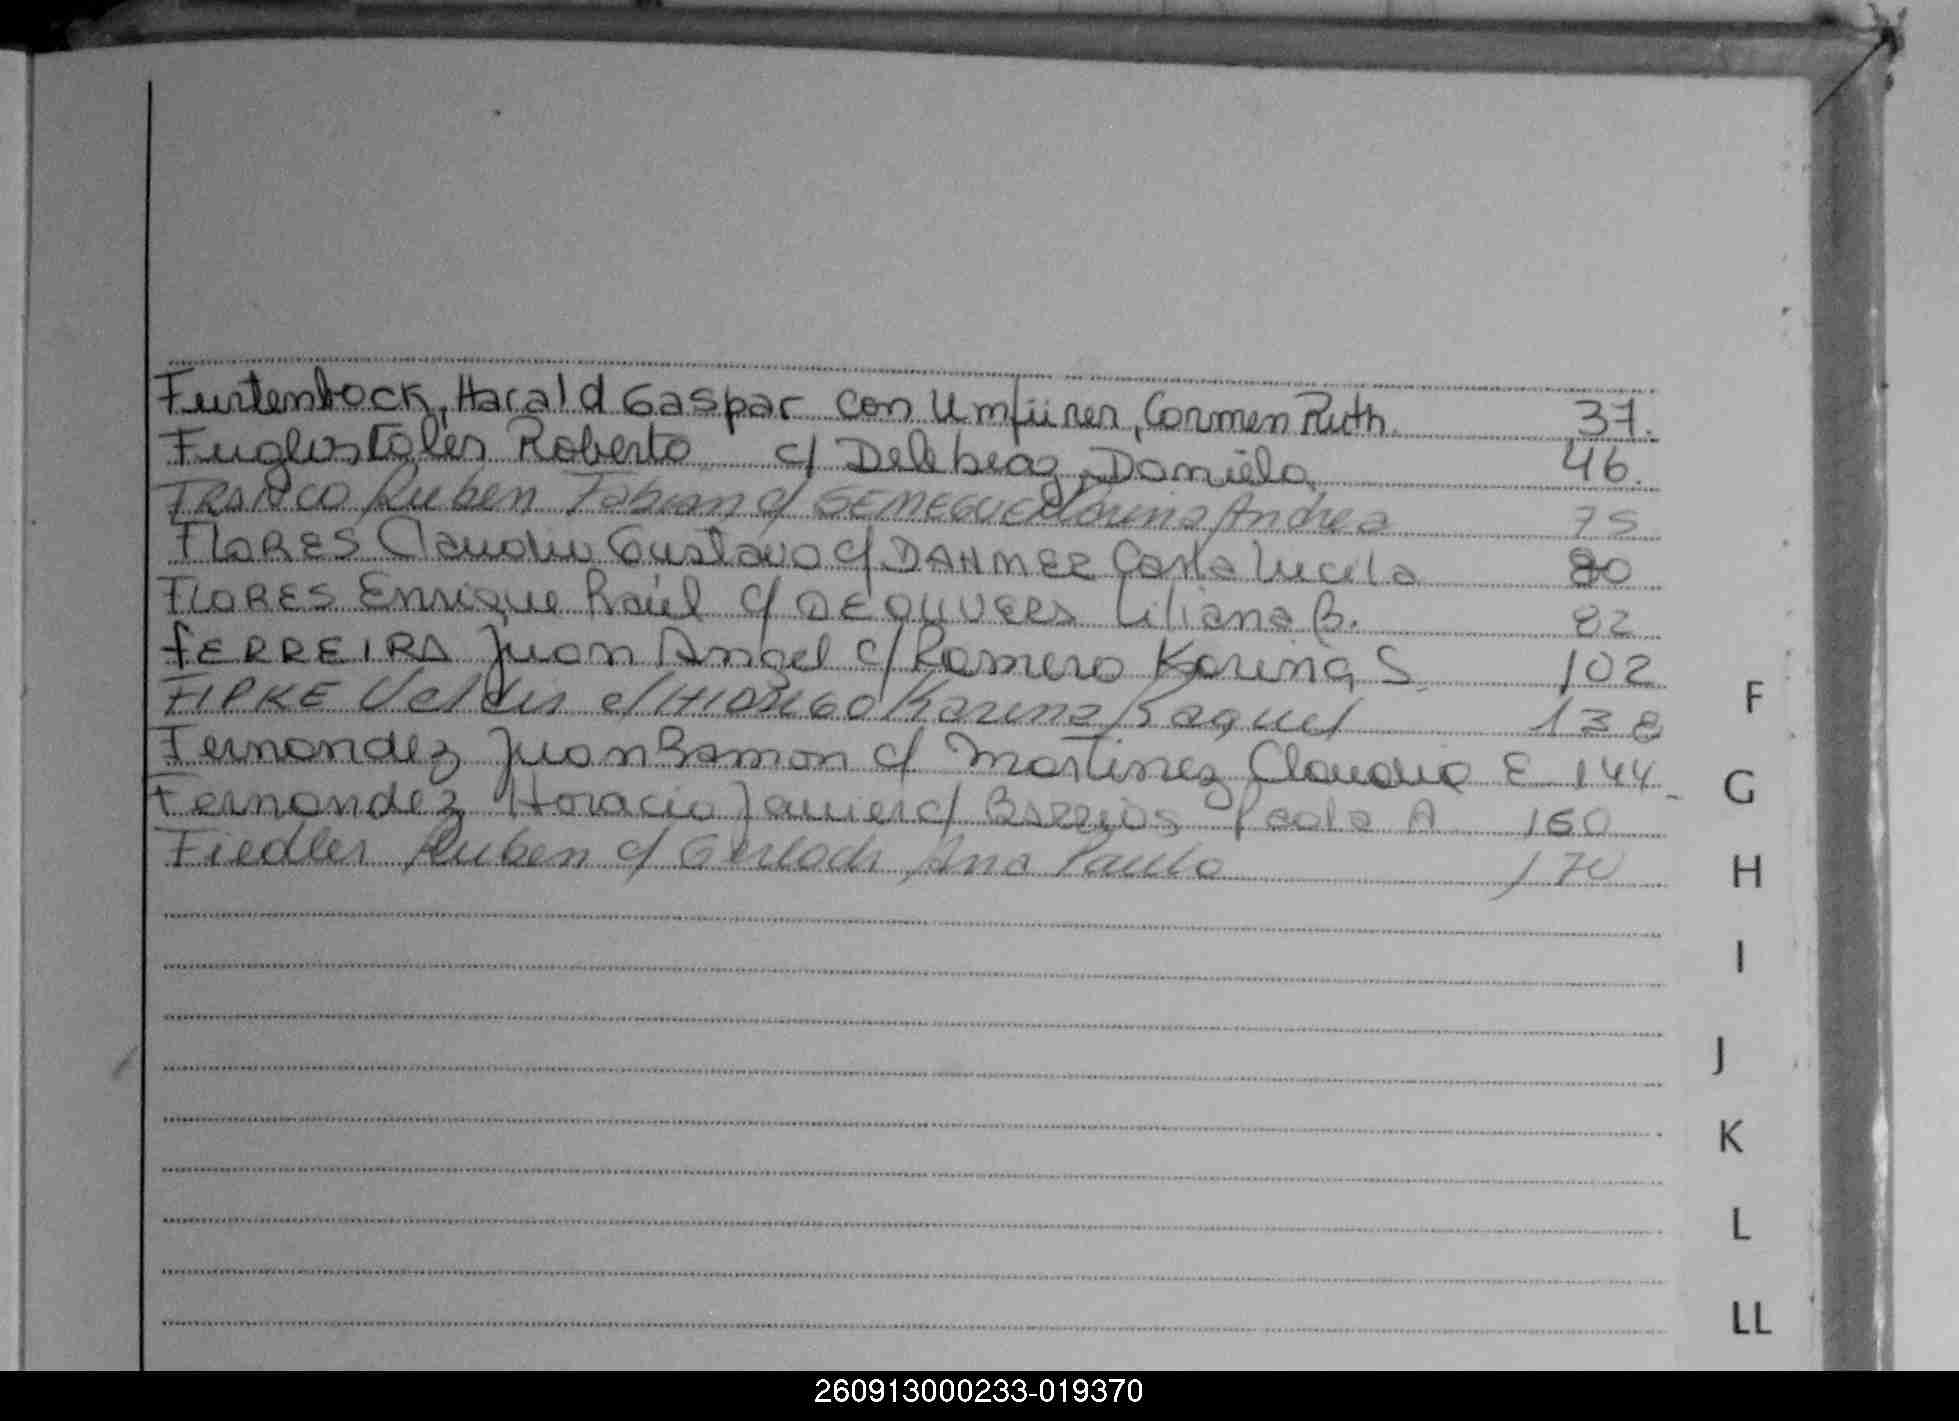 Furtenbock, Harald Gaspar con Umfürer, Carmen Ruth. 37.
Roberto c/ Daniela 46.
FRANCO Ruben Fabian c/ Andrea 75
FLORES Claudio Gustavo c/ DAHMER Carla Lucila 80
FLORES Enrique Raúl c/ Liliana B. 82
FERREIRA Juan Angel c/ Romero Karina S. 102
FIPKE c/ HIDALGO Karina Raquel 138
Fernandez Juan Ramon c/ Martinez Claudia E 144
Fernandez Horacio Javier c/ Barrios Paola A 160
Fiedler Ruben c/ Gerloch Ana Paula 170
F
G
H
I
J
K
L
LL
260913000233-019370